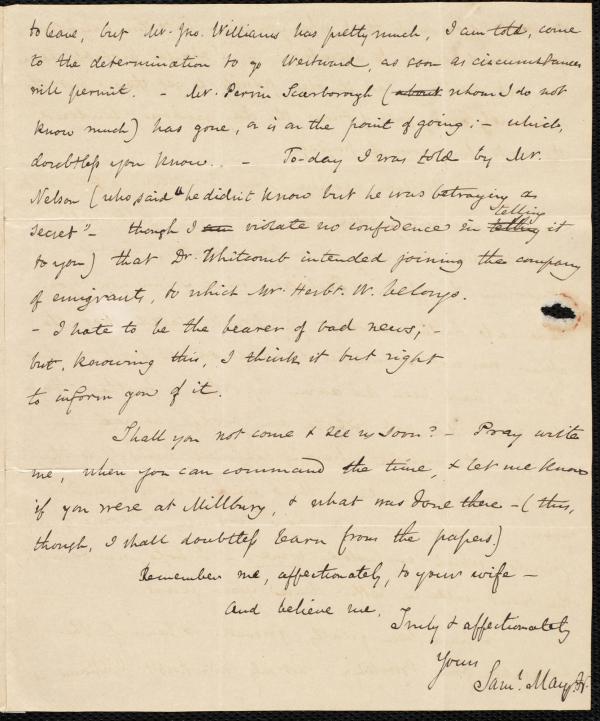 to leave, but Mr. Jno. Williams has pretty much, I am told, come
to the determination to go Westward, as soon as circumstances
will permit. – Mr. Perrin Scarborough (about whom I do not
know much) has gone, or is on the point of going; – which,
doubtless you know. – To-day I was told by Mr.
Nelson (who said "he didn't know but he was betraying a
secret" – though I violate no confidence in telling it
to you) that Dr. Whitcomb intended joining the company
of emigrants, to which Mr. Herbt. W. belongs.
– I hate to be the bearer of bad news; –
but, knowing this, I think it but right
to inform you of it.
Shall you not come & see us soon? – Pray write
me, when you can command the time, & let me know
if you were at Millbury, & what was done there – (this,
though, I shall doubtless learn from the papers)
Remember me, affectionately, to your wife –
and believe me,
Truly & affectionately
Yours
Saml. May, Jr.